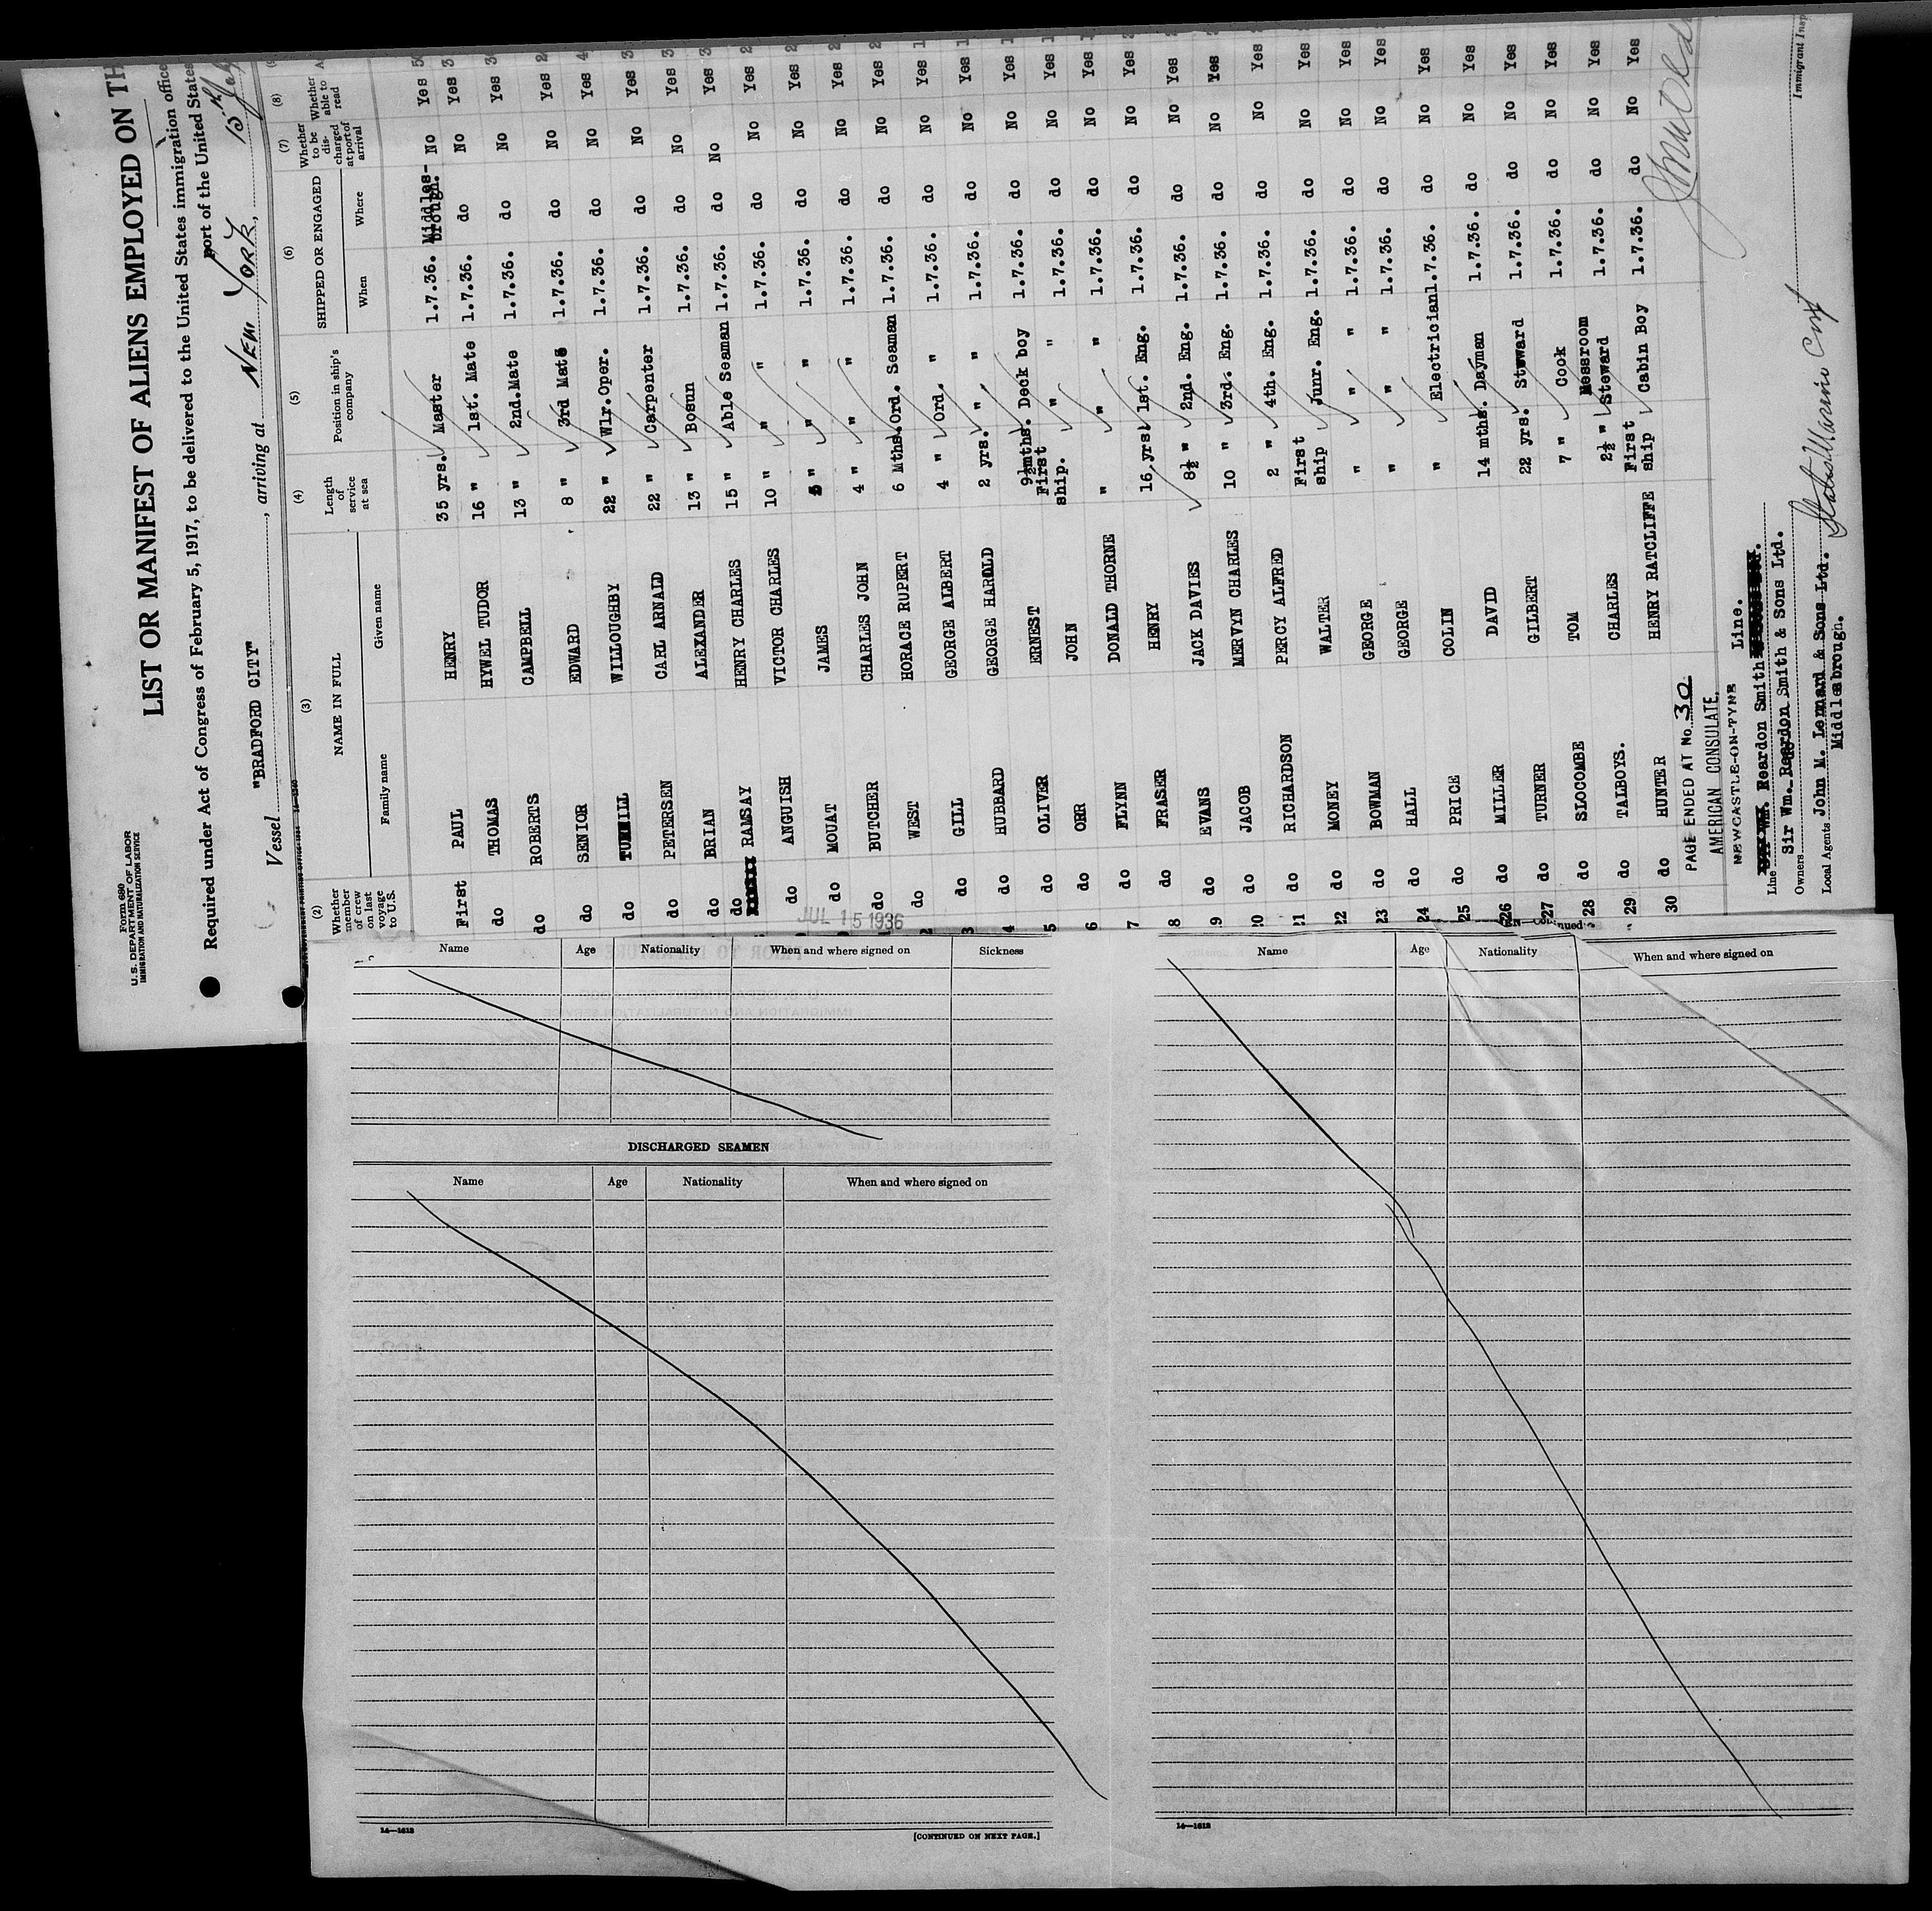 Form 680
U.S. DEPARTMENT OF LABOR
IMMIGRATION AND NATURALIZATION SERVICE
LIST OR MANIFEST OF ALIENS EMPLOYED ON TH
Required under Act of Congress of February 5, 1917, to be delivered to the United States immigration office
port of the United States
Vessel "BRADFORD CITY", arriving at NEW YORK, 15th
(2) (3) (4) (5) (6) (7) (8)
Whether member of crew on last voyage to U.S. NAME IN FULL Length of service at sea Position in ship's company SHIPPED OR ENGAGED Whether to be discharged at port of arrival Whether able to read A
Family name Given name When Where
First PAUL HENRY 35 yrs. Master 1.7.36. Middlesbrough. No Yes 5
do THOMAS HYWEL TUDOR 16 " 1st. Mate 1.7.36. do No Yes 3
do ROBERTS CAMPBELL 13 " 2nd.Mate 1.7.36. do No Yes 3
do SENIOR EDWARD 8 " 3rd Mate 1.7.36. do No Yes 2
do TURMILL WILLOUGHBY 22 " Wlr.Oper. 1.7.36. do No Yes 4
do PETERSEN CARL ARNALD 22 " Carpenter 1.7.36. do No Yes 3
do BRIAN ALEXANDER 13 " Bosun 1.7.36. do No Yes 3
do RAMSAY HENRY CHARLES 15 " Able Seaman 1.7.36. do No Yes 3
do ANGUISH VICTOR CHARLES 10 " " " 1.7.36. do No Yes 2
do MOUAT JAMES " " " 1.7.36. do No Yes 2
do BUTCHER CHARLES JOHN 4 " " " 1.7.36. do No Yes 2
do WEST HORACE RUPERT 6 Mths. Ord. Seaman 1.7.36. do No Yes 2
do GILL GEORGE ALBERT 4 " Ord. " 1.7.36. do No Yes 1
do HUBBARD GEORGE HAROLD 2 yrs. " " 1.7.36. do No Yes 1
do OLIVER ERNEST 9½mths. Deck boy 1.7.36. do No Yes 1
do ORR JOHN First ship. " " 1.7.36. do No Yes 1
do FLYNN DONALD THORNE " " " 1.7.36. do No Yes 1
do FRASER HENRY 16 yrs 1st. Eng. 1.7.36. do No Yes
do EVANS JACK DAVIES 8½ " 2nd. Eng. 1.7.36. do No Yes
do JACOB MERVYN CHARLES 10 " 3rd. Eng. 1.7.36. do No Yes
do RICHARDSON PERCY ALFRED 2 " 4th. Eng. 1.7.36. do No Yes
22 do MONEY WALTER First ship Junr. Eng. 1.7.36. do No Yes
23 do BOWMAN GEORGE " " " 1.7.36. do No Yes
24 do HALL GEORGE " " " 1.7.36. do No Yes
25 do PRICE COLIN " Electrician 1.7.36. do No Yes
26 do MILLER DAVID 14 mths. Dayman 1.7.36. do No Yes
27 do TURNER GILBERT 22 yrs. Steward 1.7.36. do No Yes
28 do SLOCOMBE TOM 7 " Cook 1.7.36. do No Yes
29 do TALBOYS. CHARLES 2½ " Messroom Steward 1.7.36. do No Yes
30 do HUNTER HENRY RATCLIFFE First ship Cabin Boy 1.7.36. do No Yes
PAGE ENDED AT No. 30
AMERICAN CONSULATE,
NEWCASTLE-ON-TYNE
Line Reardon Smith Line.
Owners Sir Wm. Reardon Smith & Sons Ltd.
Local Agents John M. Lennard & Sons Ltd.
Middlesbrough.
States Marine Corp
Immigrant Insp
JUL 15 1936
Name Age Nationality When and where signed on Sickness
DISCHARGED SEAMEN
Name Age Nationality When and where signed on
14—1613
[CONTINUED ON NEXT PAGE.]
Continued
Name Age Nationality When and where signed on
14—1613